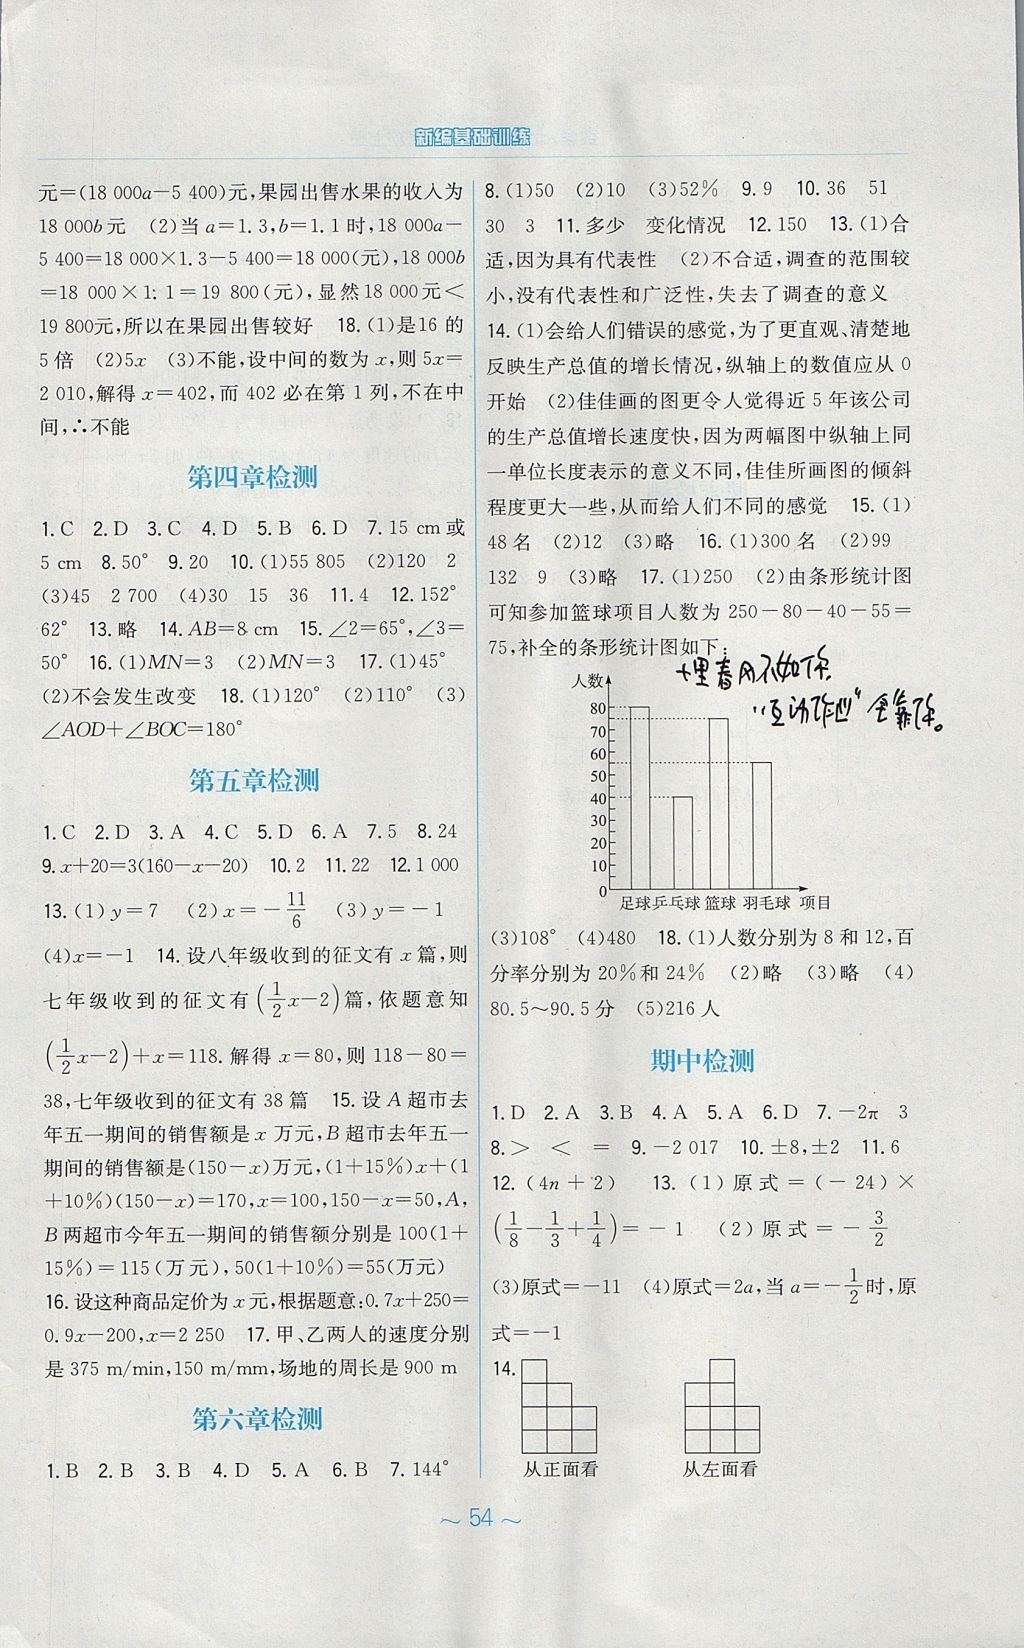 新编基础训练
元=(18 000a-5 400)元,果园出售水果的收入为
18 000b元 (2)当a=1.3,b=1.1时,18 000a-
5 400=18 000×1.3-5 400=18 000(元),18 000b
=18 000×1.1=19 800(元),显然18 000元<
19 800元,所以在果园出售较好 18.(1)是16的
5倍 (2)5x (3)不能,设中间的数为x,则5x=
2 010,解得x=402,而402必在第1列,不在中
间,∴不能
第四章检测
1.C 2.D 3.C 4.D 5.B 6.D 7.15 cm或
5 cm 8.50° 9.20 10.(1)55 805 (2)120 2
(3)45 2 700 (4)30 15 36 11.4 12.152°
62° 13.略 14.AB=8 cm 15.∠2=65°,∠3=
50° 16.(1)MN=3 (2)MN=3 17.(1)45°
(2)不会发生改变 18.(1)120° (2)110° (3)
∠AOD+∠BOC=180°
第五章检测
1.C 2.D 3.A 4.C 5.D 6.A 7.5 8.24
9.x+20=3(160-x-20) 10.2 11.22 12.1 000
13.(1)y=7 (2)x=-11/6 (3)y=-1
(4)x=-1 14.设八年级收到的征文有x篇,则
七年级收到的征文有(1/2x-2)篇,依题意知
(1/2x-2)+x=118.解得x=80,则118-80=
38,七年级收到的征文有38篇 15.设A超市去
年五一期间的销售额是x万元,B超市去年五一
期间的销售额是(150-x)万元,(1+15%)x+(1
+10%)(150-x)=170,x=100,150-x=50,A,
B两超市今年五一期间的销售额分别是100(1+
15%)=115(万元),50(1+10%)=55(万元)
16.设这种商品定价为x元,根据题意:0.7x+250=
0.9x-200,x=2 250 17.甲、乙两人的速度分别
是375 m/min,150 m/mm,场地的周长是900 m
第六章检测
1.B 2.B 3.B 4.D 5.A 6.B 7.144°
8.(1)50 (2)10 (3)52% 9.9 10.36 51
30 3 11.多少 变化情况 12.150 13.(1)合
适,因为具有代表性 (2)不合适,调查的范围较
小,没有代表性和广泛性,失去了调查的意义
14.(1)会给人们错误的感觉,为了更直观、清楚地
反映生产总值的增长情况,纵轴上的数值应从0
开始 (2)佳佳画的图更令人觉得近5年该公司
的生产总值增长速度快,因为两幅图中纵轴上同
一单位长度表示的意义不同,佳佳所画图的倾斜
程度更大一些,从而给人们不同的感觉 15.(1)
48名 (2)12 (3)略 16.(1)300名 (2)99
132 9 (3)略 17.(1)250 (2)由条形统计图
可知参加篮球项目人数为250-80-40-55=
75,补全的条形统计图如下:
十里春风不如你
"互动作业"全靠你。
人数
80
70
60
50
40
30
20
10
0
足球 乒乓球 篮球 羽毛球 项目
(3)108° (4)480 18.(1)人数分别为8和12,百
分率分别为20%和24% (2)略 (3)略 (4)
80.5~90.5分 (5)216人
期中检测
1.D 2.A 3.B 4.A 5.A 6.D 7.-2π 3
8.> < = 9.-2 017 10.±8,±2 11.6
12.(4n+2) 13.(1)原式=(-24)×
(1/8-1/3+1/4)=-1 (2)原式=-3/2
(3)原式=-11 (4)原式=2a,当a=-1/2时,原
式=-1
14.
从正面看 从左面看
~54~